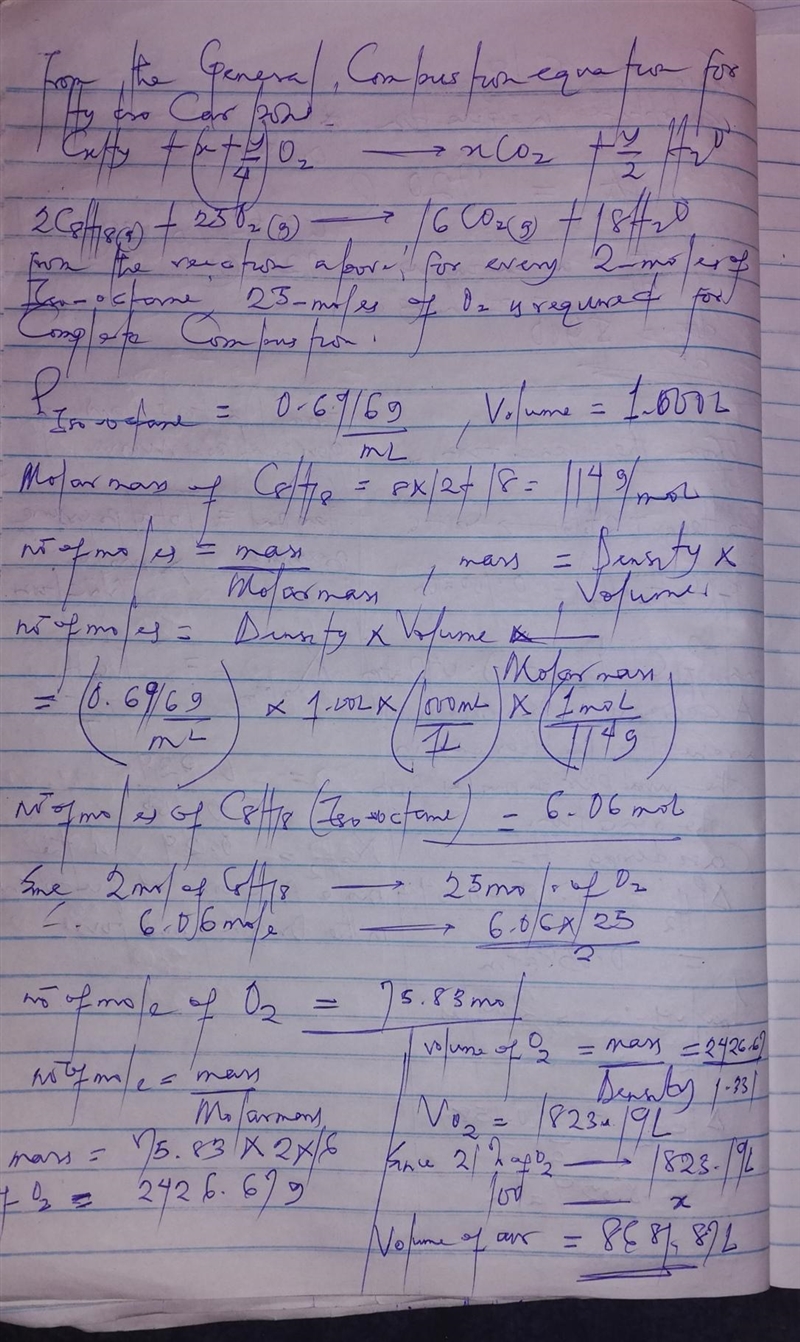 From the General, Combustion equation for
Hydro Carbon.
CxHy + (x + y/4) O2 → xCO2 + y/2 H2O
2C8H18(g) + 25O2(g) → 16CO2(g) + 18H2O
From the reaction above, for every 2-moles of
Iso-octane, 25-moles of O2 is required for
Complete Combustion.
ρ Iso-octane = 0.6916g/mL , Volume = 1.000L
Molar mass of C8H18 = 8x12+18 = 114g/mol
no of moles = mass/Molar mass , mass = Density x
Volume.
no of moles = Density x Volume x
Molar mass
= (0.6916g/mL) x 1.00L x (1000mL/1L) x (1mol/114g)
no of moles of C8H18 (Iso-octane) = 6.06mol
Since 2mol of C8H18 → 25mol of O2
∴ 6.06mole → 6.06 x 25/2
no of mole of O2 = 75.83mol
no of mole = mass/Molarmass
mass = 75.83 x 2x16
of O2 = 2426.67g
Volume of O2 = mass/Density = 2426.67/1.331
VO2 = 1823.19L
Since 21% of O2 → 1823.19L
100 — x
Volume of air = 8681.87L